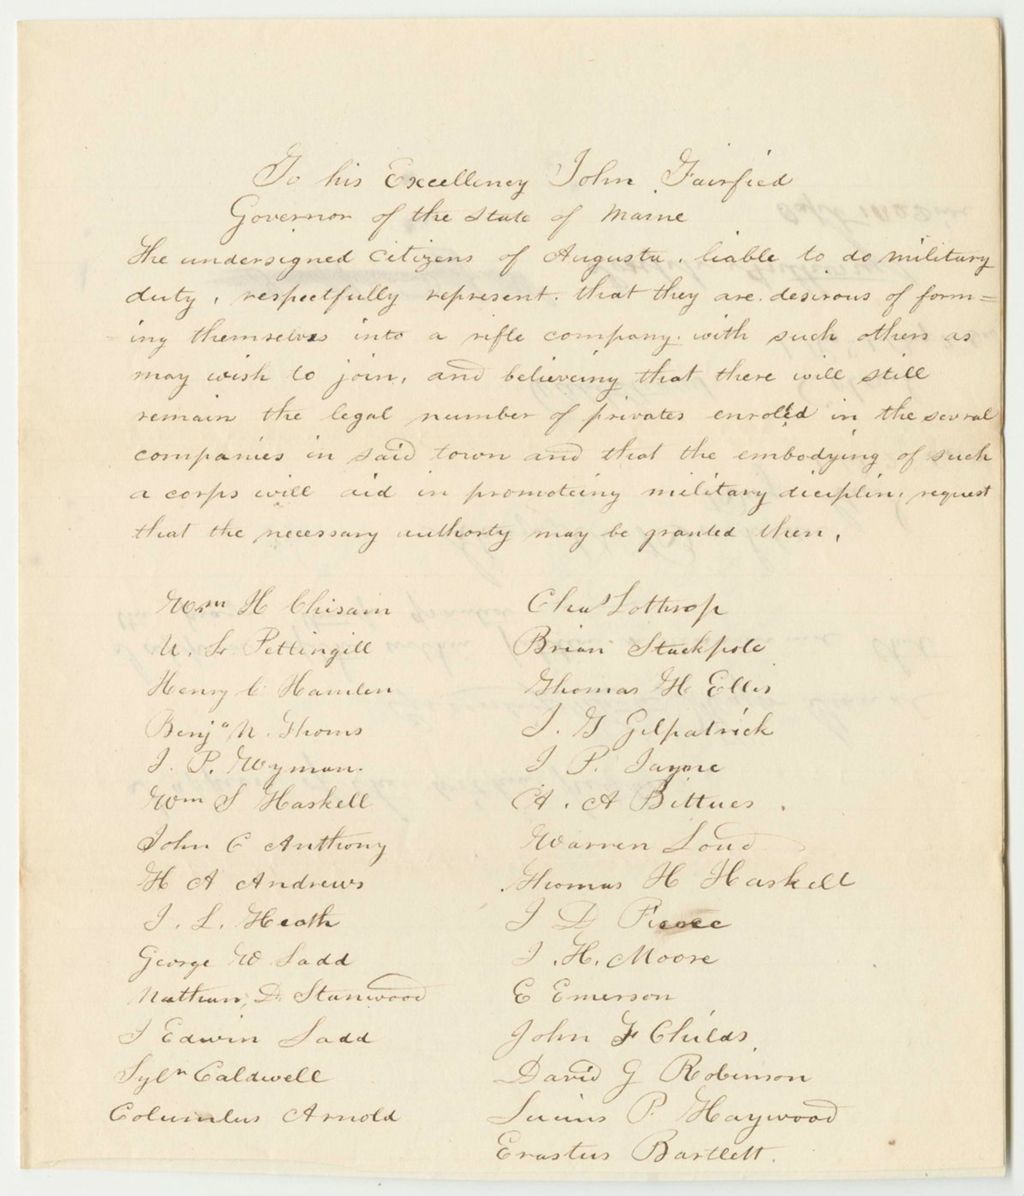 To his Excellency John Fairfied
Governor of the State of Maine
The undersigned citizens of Augusta, liable to do military
duty, respectfully represent. that they are desirous of form=
ing themselves into a rifle company. with such others as
may wish to join, and believeing that there will still
remain the legal number of privates enrolled in the several
companies in said town and that the embodying of such
a corps will aid in promoteing military diciplin, request
that the necessary authorty may be granted them,
Wm H Chisam
U. L. Pettingill
Henry C Hamlen
Benja N. Thoms
J. P. Wyman.
Wm S Haskell
John C Anthony
H A Andrews
J. L. Heath
George W Ladd
Nathan D. Stanwood
J Edwin Ladd
Sylr Caldwell
Columbus Arnold
Chas Lothrop
Brian Stackpole
Thomas H Ellis
J. G Gilpatrick
J P. Jayne
A. A Bittues.
Warren Loud
Thomas H Haskell
J D Pierce
J. H. Moore
E Emerson
John F Childs.
David G Robinson
Lucius P. Haywood
Erastus Bartlett.